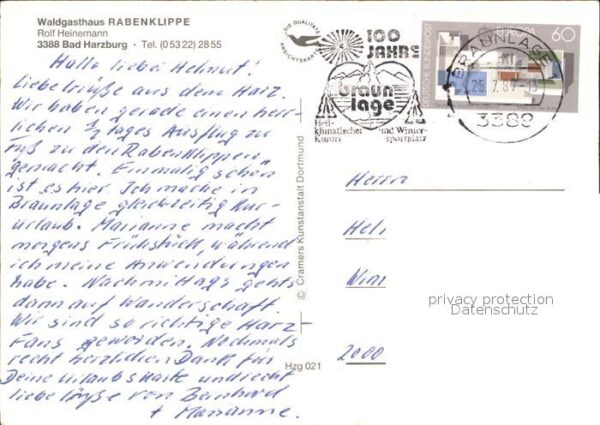 Waldgasthaus RABENKLIPPE
Rolf Heinemann
3388 Bad Harzburg · Tel. (0 53 22) 28 55
Hallo lieber Helmut!
Liebe Grüße aus dem Harz.
Wir haben gerade einen herr-
lichen 1/2 tages Ausflug zu
Fuß zu den Rabenklippen
gemacht. Einmalig schön
ist es hier. Ich mache in
Braunlage gleichzeitig Kur-
urlaub. Marianne macht
morgens Frühstück, während
ich meine Anwendungen
habe. Nachmittags gehts
dann auf Wanderschaft.
Wir sind so richtige Harz-
Fans geworden. Nochmals
recht herzlichen Dank für
Deine Urlaubskarte und recht
liebe Grüße von Bernhard
+ Marianne.
DIE QUALITÄTS
ANSICHTSKARTE
© Cramers Kunstanstalt Dortmund
Hzg 021
100
JAHRE
braun
lage
Heil-
klimatischer und Winter-
Kurort sportplatz
DEUTSCHE BUNDESPOST
EUROPA 60
BRAUNLAGE
25.7.87-15
3389
Herrn
Hel
Win
2000
privacy protection
Datenschutz